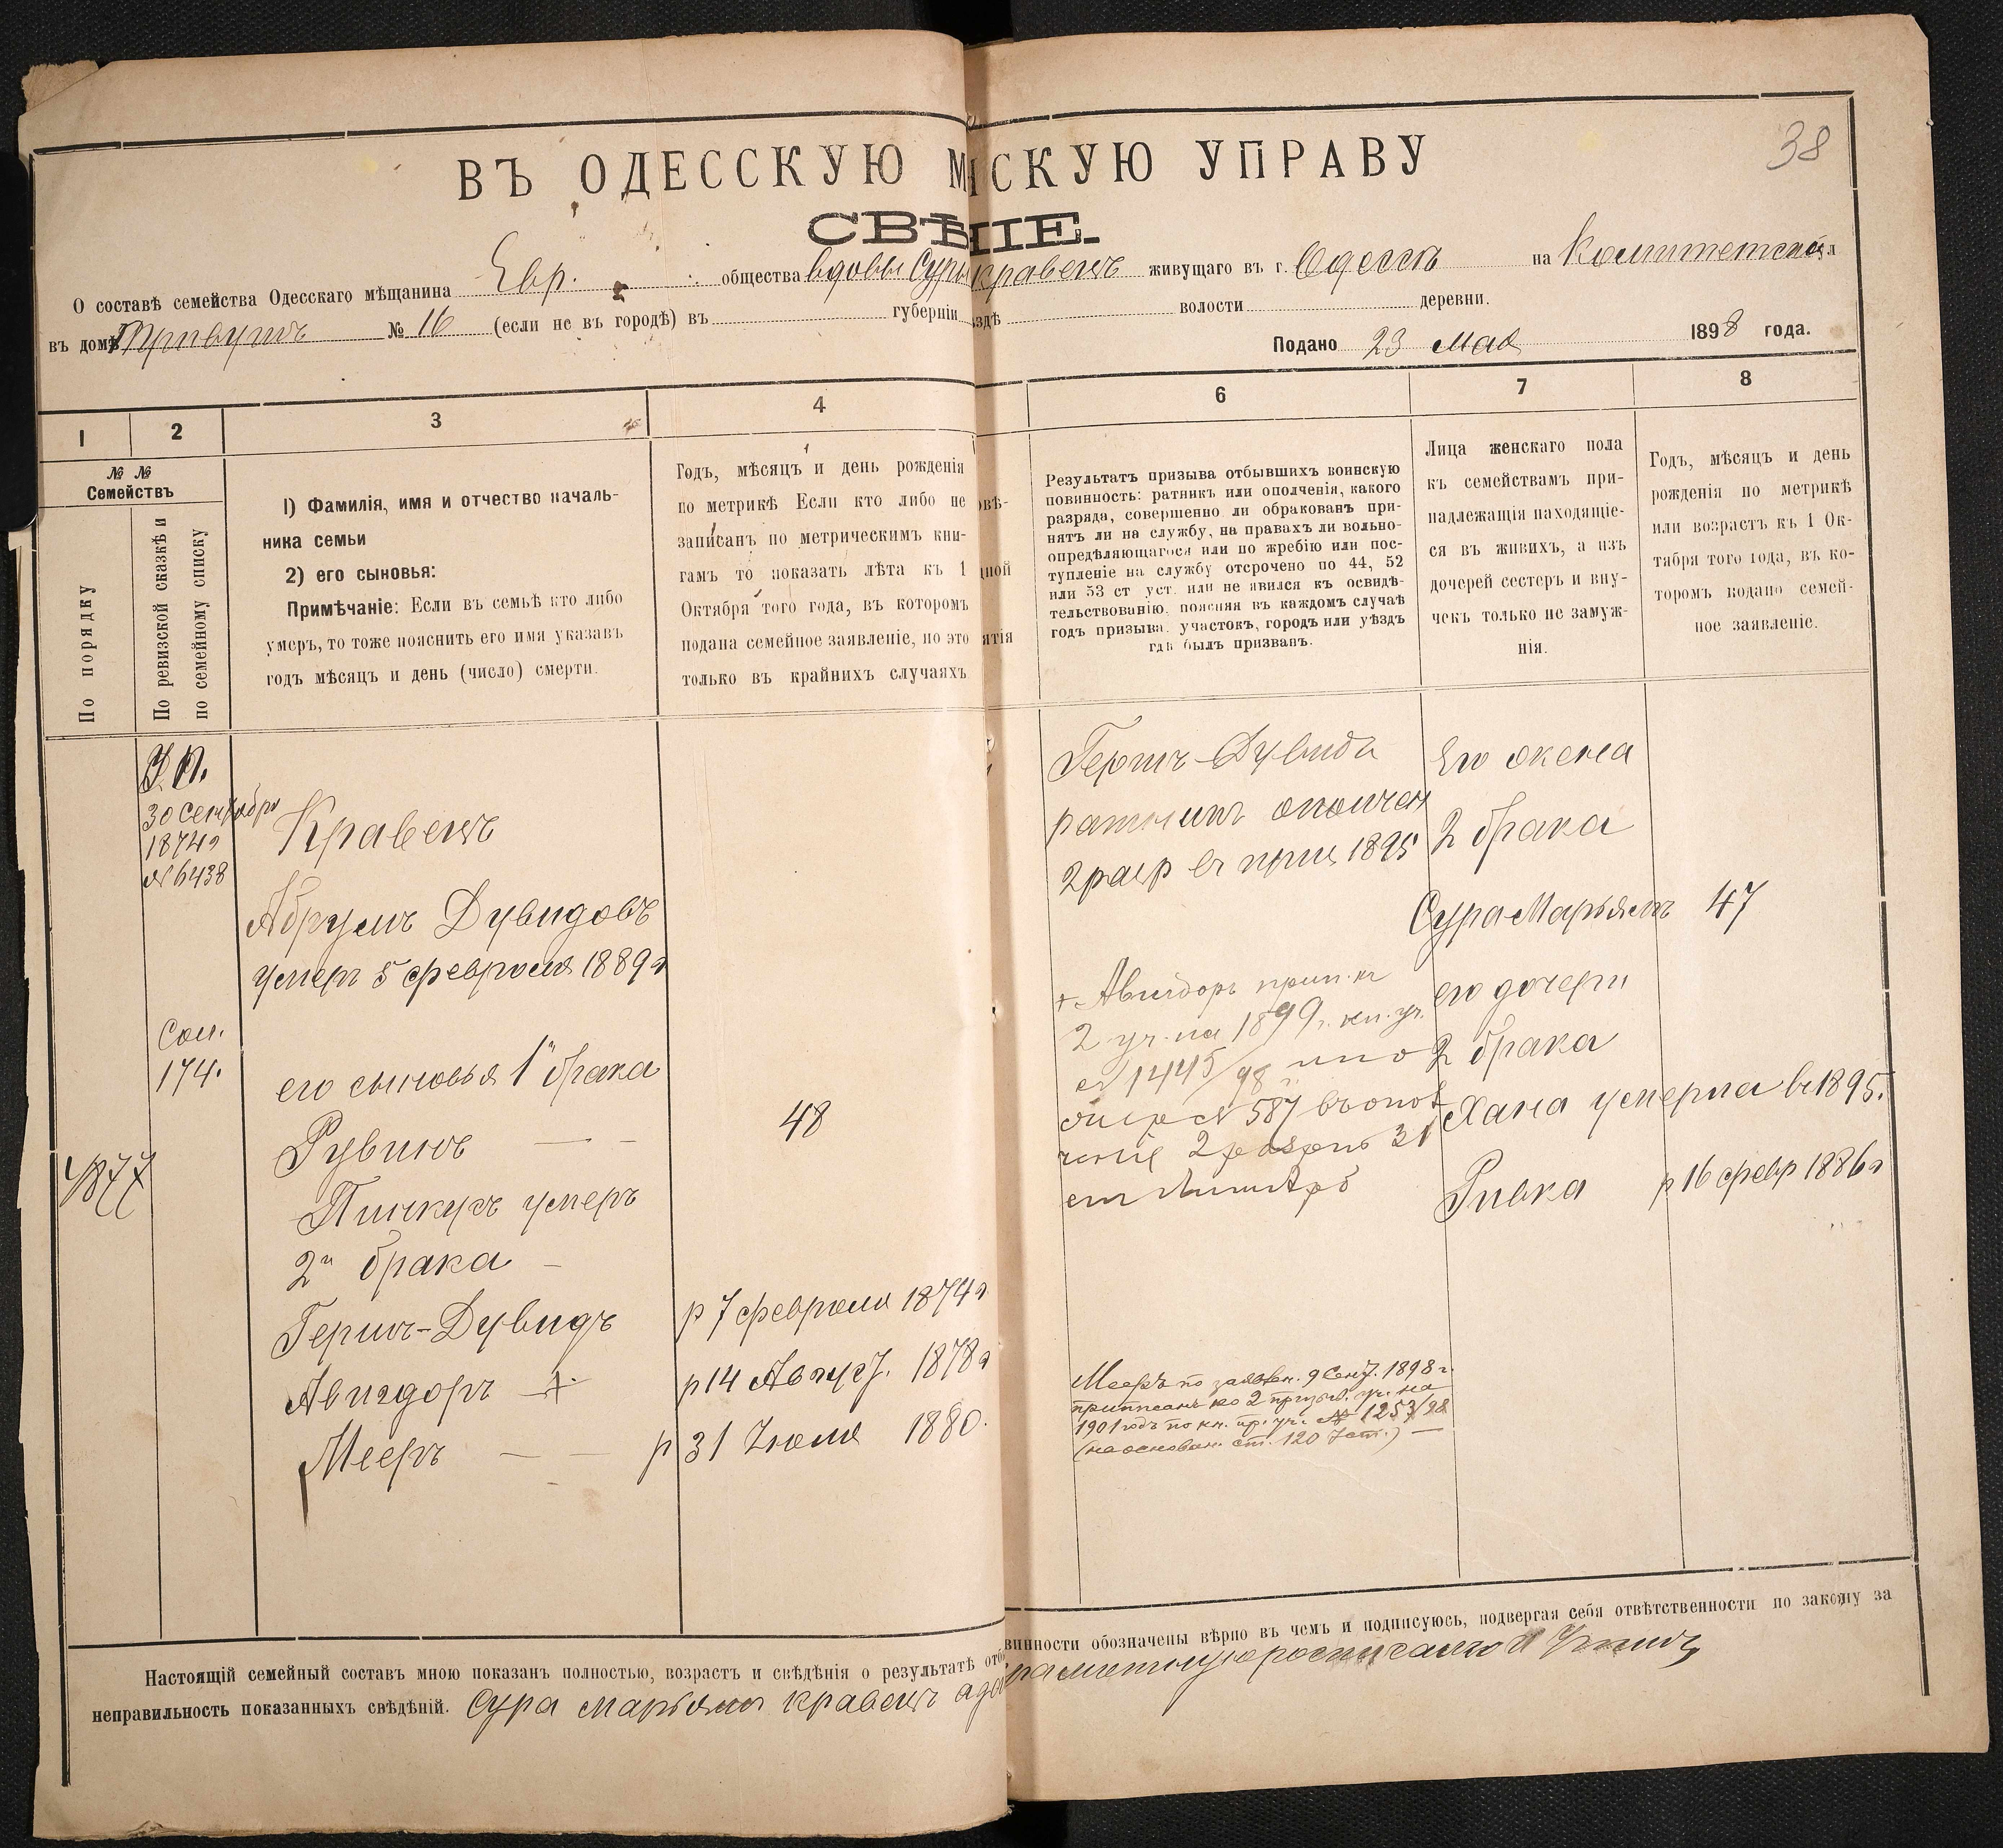 38
ВЪ ОДЕССКУЮ М СКУЮ УПРАВУ
СВѢ НІЕ.
О составѣ семейства Одесскаго мѣщанина Евр. общества вдовы Суры Кравецъ живущаго въ г. Одессѣ на Комитетской ул
въ домѣ № 16 (если не въ городѣ) въ губерніи здѣ волости деревни.
Подано 23 Мая 1898 года.
1 2 3 4 6 7 8
№ №
Семействъ
По порядку
По ревизской сказкѣ и
по семейному списку
1) Фамилія, имя и отчество началь-
ника семьи
2) его сыновья:
Примѣчаніе: Если въ семьѣ кто либо
умеръ, то тоже пояснить его имя указавъ
годъ мѣсяцъ и день (число) смерти.
Годъ, мѣсяцъ и день рожденія
по метрикѣ Если кто либо не
записанъ по метрическимъ кни-
гамъ то показать лѣта къ 1
Октября того года, въ которомъ
подана семейное заявленіе, но это
только въ крайнихъ случаяхъ
Результатъ призыва отбывшихъ воинскую
повинность: ратникъ или ополченія, какого
разряда, совершенно ли обракованъ при-
нятъ ли на службу, на правахъ ли вольно-
опредѣляющагося или по жребію или пос-
тупленіе на службу отсрочено по 44, 52
или 53 ст уст. или не явился къ освидѣ-
тельствованію. поясняя въ каждомъ случаѣ
годъ призыва. участокъ, городъ или уѣздъ
гдѣ былъ призванъ.
Лица женскаго пола
къ семействамъ при-
надлежащія находящіе-
ся въ живихъ, а изъ
дочерей сестеръ и вну-
чекъ только не замуж-
нія.
Годъ, мѣсяцъ и день
рожденія по метрикѣ
или возрастъ къ 1 Ок-
тября того года, въ ко-
торомъ подано семей-
ное заявленіе.
30 Сентября
1874г
№ 6438
Кравецъ
Абрумъ Дувидовъ
умеръ 5 февраля 1889г
174.
его сыновья 1й брака
Рувинъ — - 48
Пинкусъ умеръ
2й брака -
Гершъ-Дувидъ р 7 февраля 1874г
Авигдоръ + р 14 Август. 1878г
Мееръ — — р 31 Іюля 1880.
Гершъ-Дувидъ
ратникъ ополчен
2 разр въ приз 1895
+ Авигдоръ прип. къ
2 уч. на 1899 г. кн. уч.
№ 1445/98
№ 587
2 31
Мееръ по заявлен. 9 Сент. 1898 г.
приписанъ ко 2 призыв. уч. на
1901 годъ по кн. пр. уч. № 1253/98
(на основан. ст. 120 Уст.) —
Его жена
2 брака
Сура Марьямъ 47
его дочери
2 брака
Хана умерла въ 1895.
Ривка р 16 февр 1886г
Настоящій семейный составъ мною показанъ полностью, возрастъ и свѣдѣнія о результатѣ отб винности обозначены вѣрно въ чемъ и подписуюсь, подвергая себя отвѣтственности по закону за
неправильность показанныхъ свѣдѣній. Сура Марьямъ Кравецъ